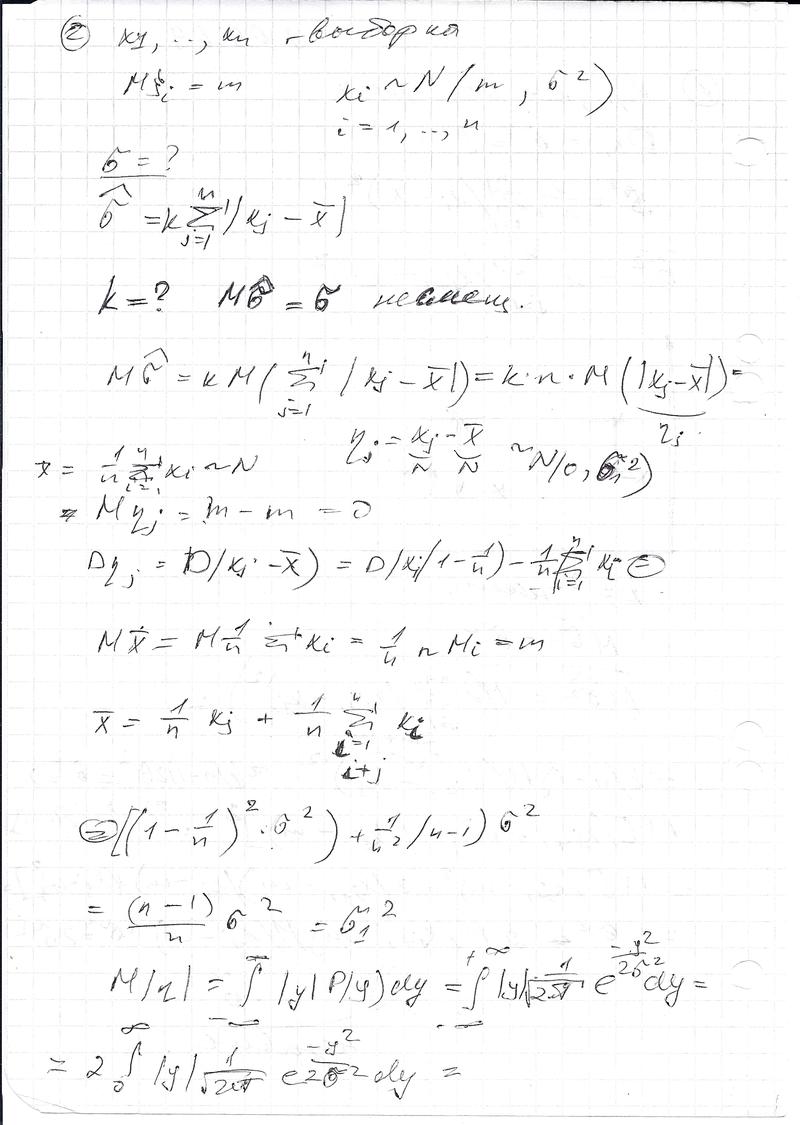 ② x1, .., xn - выборка
Mξi = m    xi ~ N(m, σ²)
i = 1, .., n
σ = ?
σ̂ = k Σ_{j=1}^{n} |xj − x̄|
k = ?  Mσ̂ = σ  несмещ.
Mσ̂ = kM(Σ_{j=1}^{n} |xj − x̄|) = k·n·M(|xj − x̄|) =
ηj
x̄ = 1/n Σ_{i=1}^{n} xi ~ N    ηj = xj − x̄ ~ N(0, σ1²)
N  N
Mηj = m − m = 0
Dηj = D(xj − x̄) = D(xj(1 − 1/n) − 1/n Σ_{i=1}^{n} xi ⊜
Mx̄ = M 1/n Σ xi = 1/n n Mi = m
x̄ = 1/n xj + 1/n Σ_{i=1, i≠j}^{n} xi
⊜ ((1 − 1/n)² · σ²) + 1/n² (n−1) σ²
= (n−1)/n σ² = σ1²
M|η| = ∫_{−∞}^{∞} |y| P(y) dy = ∫_{−∞}^{+∞} |y| 1/√2π e^{−y²/2σ²} dy =
= 2 ∫_0^∞ |y| 1/√2π e^{−y²/2σ²} dy =